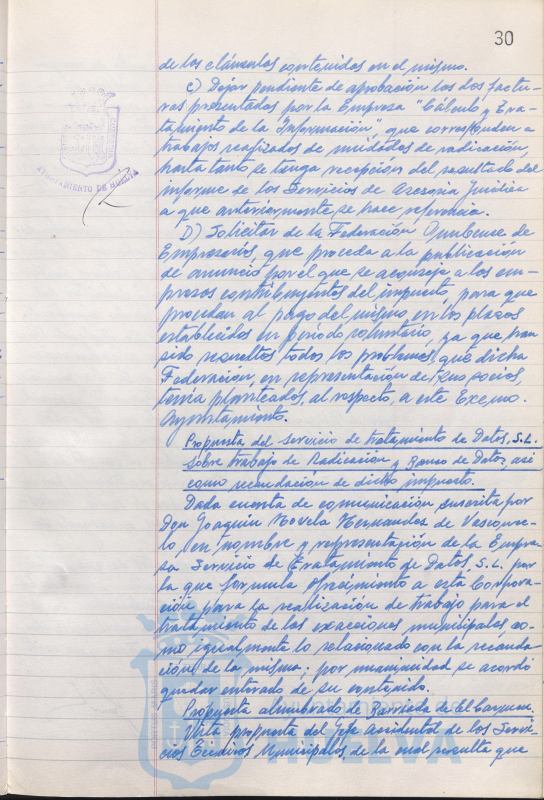 30
de los elementos contenidos en el mismo.
C) Dejar pendiente de aprobación las dos factu-
ras presentadas por la Empresa "Cálculo y Tra-
tamiento de la Información", que corresponden a
trabajos realizados de unidades de radicación,
hasta tanto se tenga recepción del resultado del
informe de los Servicios de Asesoría Jurídica
a que anteriormente se hace referencia.
D) Solicitar de la Federación Onubense de
Empresarios, que proceda a la publicación
de anuncio por el que se aconseja a los em-
presas contribuyentes del impuesto, para que
procedan al pago del mismo en los plazos
establecidos en período voluntario, ya que han
sido resueltos todos los problemas, que dicha
Federación, en representación de sus socios,
tenía planteados, al respecto, a este Excmo.
Ayuntamiento.
Propuesta del Servicio de tratamiento de Datos, S.L.
sobre trabajo de Radicación y Banco de Datos, así
como recaudación de dicho impuesto.
Dada cuenta de comunicación suscrita por
Don Joaquín Hernández de
en nombre y representación de la Empre-
sa Servicio de Tratamiento de Datos, S.L. por
la que formula ofrecimiento a esta Corpora-
ción para la realización de trabajo para el
tratamiento de las exacciones municipales co-
mo igualmente lo relacionado con la recauda-
ción de la misma; por unanimidad se acordó
quedar enterado de su contenido.
Propuesta alumbrado de Barriada de El Carmen.
Vista propuesta del Jefe Accidental de los Servi-
cios Técnicos Municipales, de la cual resulta que
AYUNTAMIENTO DE HUELVA
HUELVA